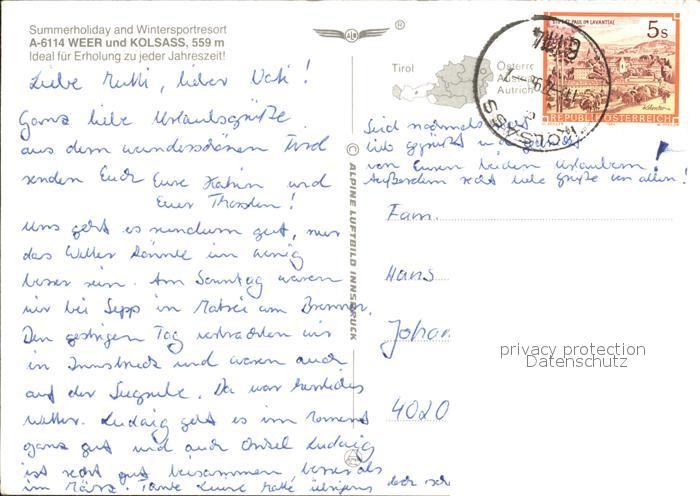 Summerholiday and Wintersportresort
A-6114 WEER und KOLSASS, 559 m
Ideal für Erholung zu jeder Jahreszeit!
®
Tirol
Österr
Austria
Autrich
ST. PAUL IM LAVANTTAL
5s
REPUBLIK ÖSTERREICH
6114
KOLSASS
© ALPINE LUFTBILD INNSBRUCK
Liebe Mutti, lieber Vati!
Ganz liebe Urlaubsgrüße
aus dem wunderschönen Tirol
senden Euch Eure Katrin und
Euer Thorsten!
Uns geht es rundum gut, nur
das Wetter könnte ein wenig
besser sein. Am Sonntag waren
wir bei Sepp in Matrei am Brenner.
Den gestrigen Tag verbrachten wir
in Innsbruck und waren auch
auf der Seegrube. Da war herrliches
Wetter. Ludwig geht es im Moment
ganz gut und auch Onkel Ludwig
ist recht gut beisammen besser als
im März. Tante Luise hatte übrigens
Seid nochmals
lieb gegrüßt und
von Euren beiden Urlaubern!
Außerdem recht liebe Grüße von allen!
Fam.
Hans
Johan
4020
privacy protection
Datenschutz